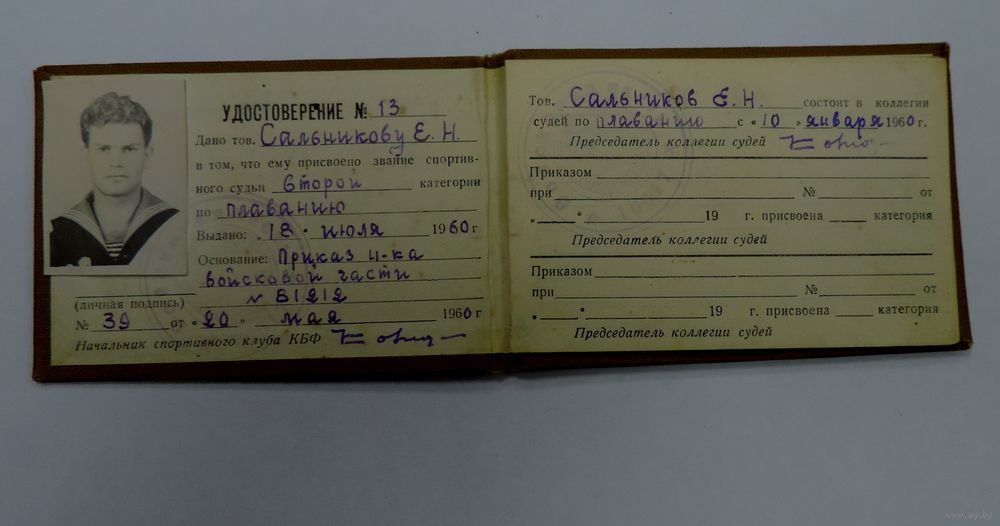 УДОСТОВЕРЕНИЕ № 13
Дано тов. Сальникову Е. Н.
в том, что ему присвоено звание спортив-
ного судьи второй категории
по плаванию
Выдано: 18 июля 1960 г
Основание: Приказ н-ка
войсковой части
(личная подпись) № 81212
№ 39 от «20» мая 1960 г
Начальник спортивного клуба КБФ
Тов. Сальников Е. Н. состоит в коллегии
судей по плаванию с «10» января 1960 г.
Председатель коллегии судей
Приказом
при № от
„ “ 19 г. присвоена категория
Председатель коллегии судей
Приказом
при № от
„ “ 19 г. присвоена категория
Председатель коллегии судей
www.ay.by